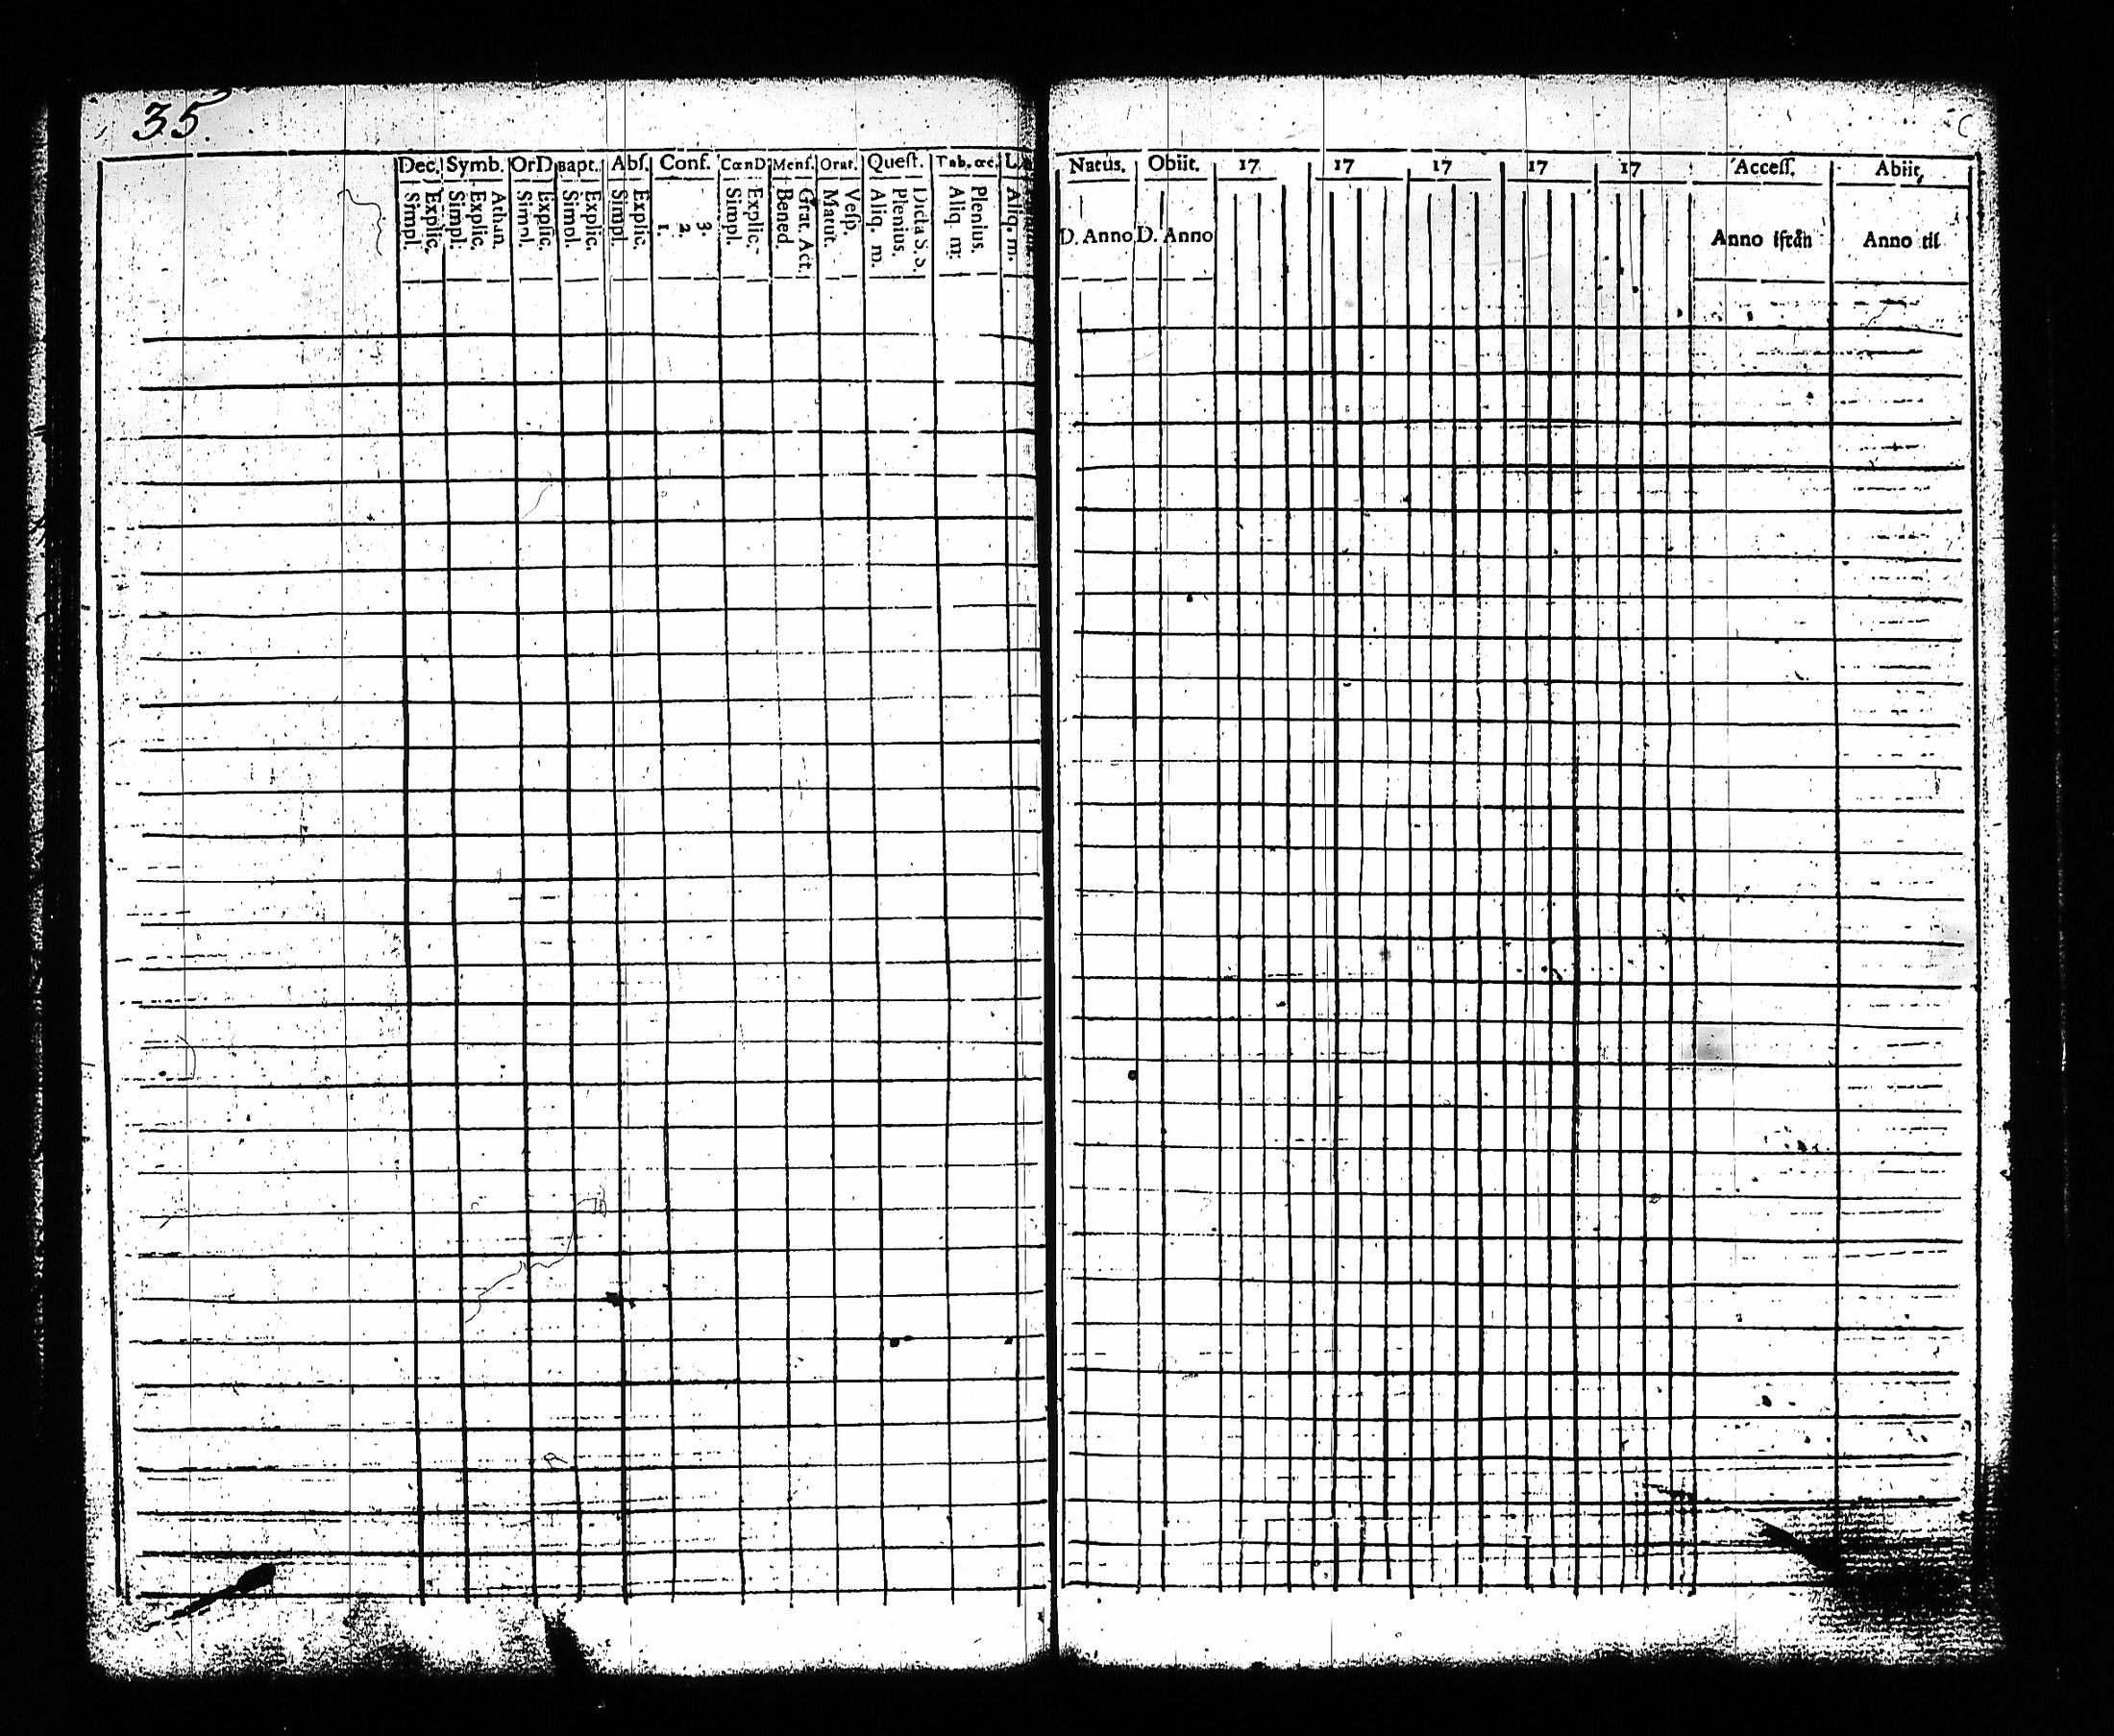 35.
Dec. Symb. OrD Bapt. Abſ. Conf. CœnD Menſ. Orat. Queſt. Tab. œc. L.
Simpl. Explic. Simpl. Explic. Athan. Simpl. Explic. Simpl. Explic. Simpl. Explic. 1. 2. 3. Simpl. Explic. Bened. Grat. Act. Matut. Veſp. Aliq. m. Plenius. Dicta S.S. Aliq. m. Plenius. Aliq. m.
Natus. Obiit. 17 17 17 17 17 Acceſſ. Abiit.
D. Anno D. Anno Anno ifrån Anno til